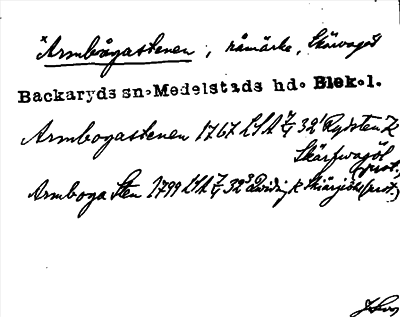 *Armbågastenen, råmärke, Skärvagöl
Backaryds sn. Medelstads hd. Blek.l.
Armbogastenen 1767 LSA 7/G 32¹ Rydsten, k
Skärfwagöl (prot.)
Armboga Sten 1799 LSA 7/G 32³ k Skiärjöhl (prot.)